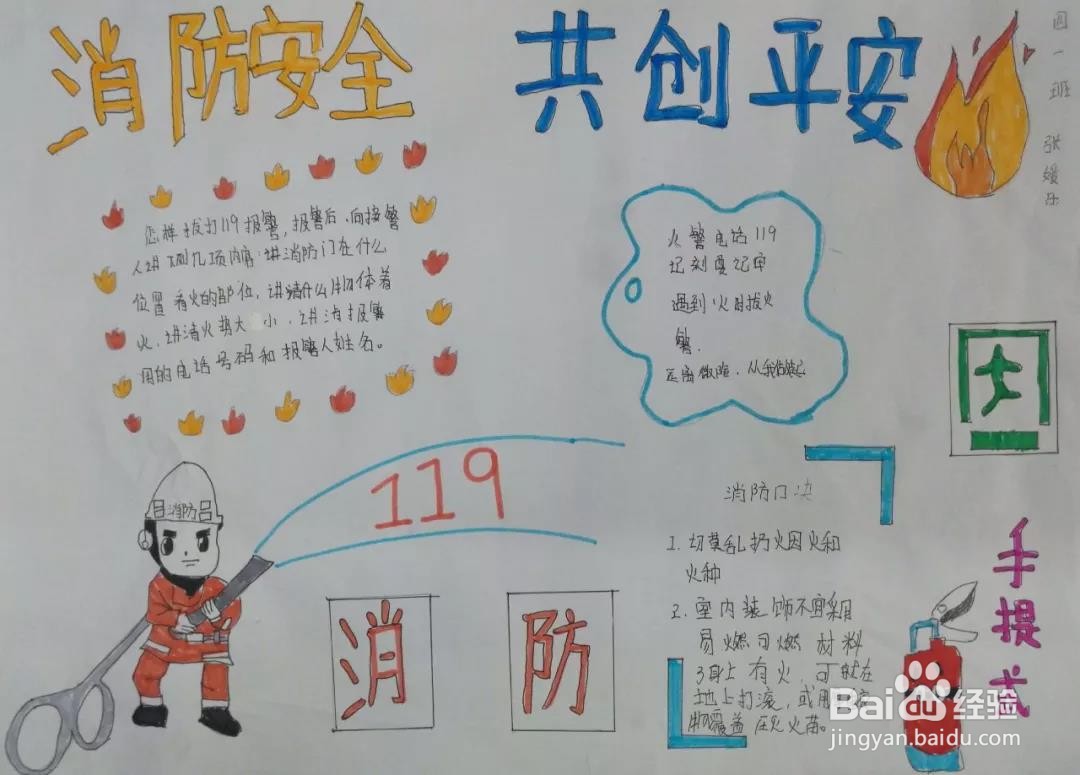 消防安全
共创平安
四一班 张媛乐
怎样拔打119报警,报警后,向接警
人讲 几项内容:讲消防门在什么
位置 着火的部位,讲清什么物体着
火,讲清火势大小,讲清报警
用的电话号码和报警人姓名。
火警电话119
记刻要记牢
遇到火时拔火
警.
远离微险,从我做起
消防
119
消防口决
1. 切莫乱扔烟火和
火种
2. 室内装饰不宜采用
易燃可燃材料
3身上有火,可就在
地上打滚,或用
物覆盖压火苗。
消
防
手提式
Baidu经验
jingyan.baidu.com